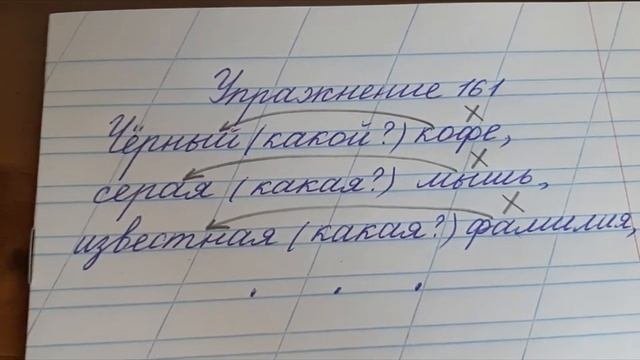 Упражнение 161
Чёрный (какой?) кофе,
серая (какая?) мышь,
известная (какая?) фамилия,
. . .